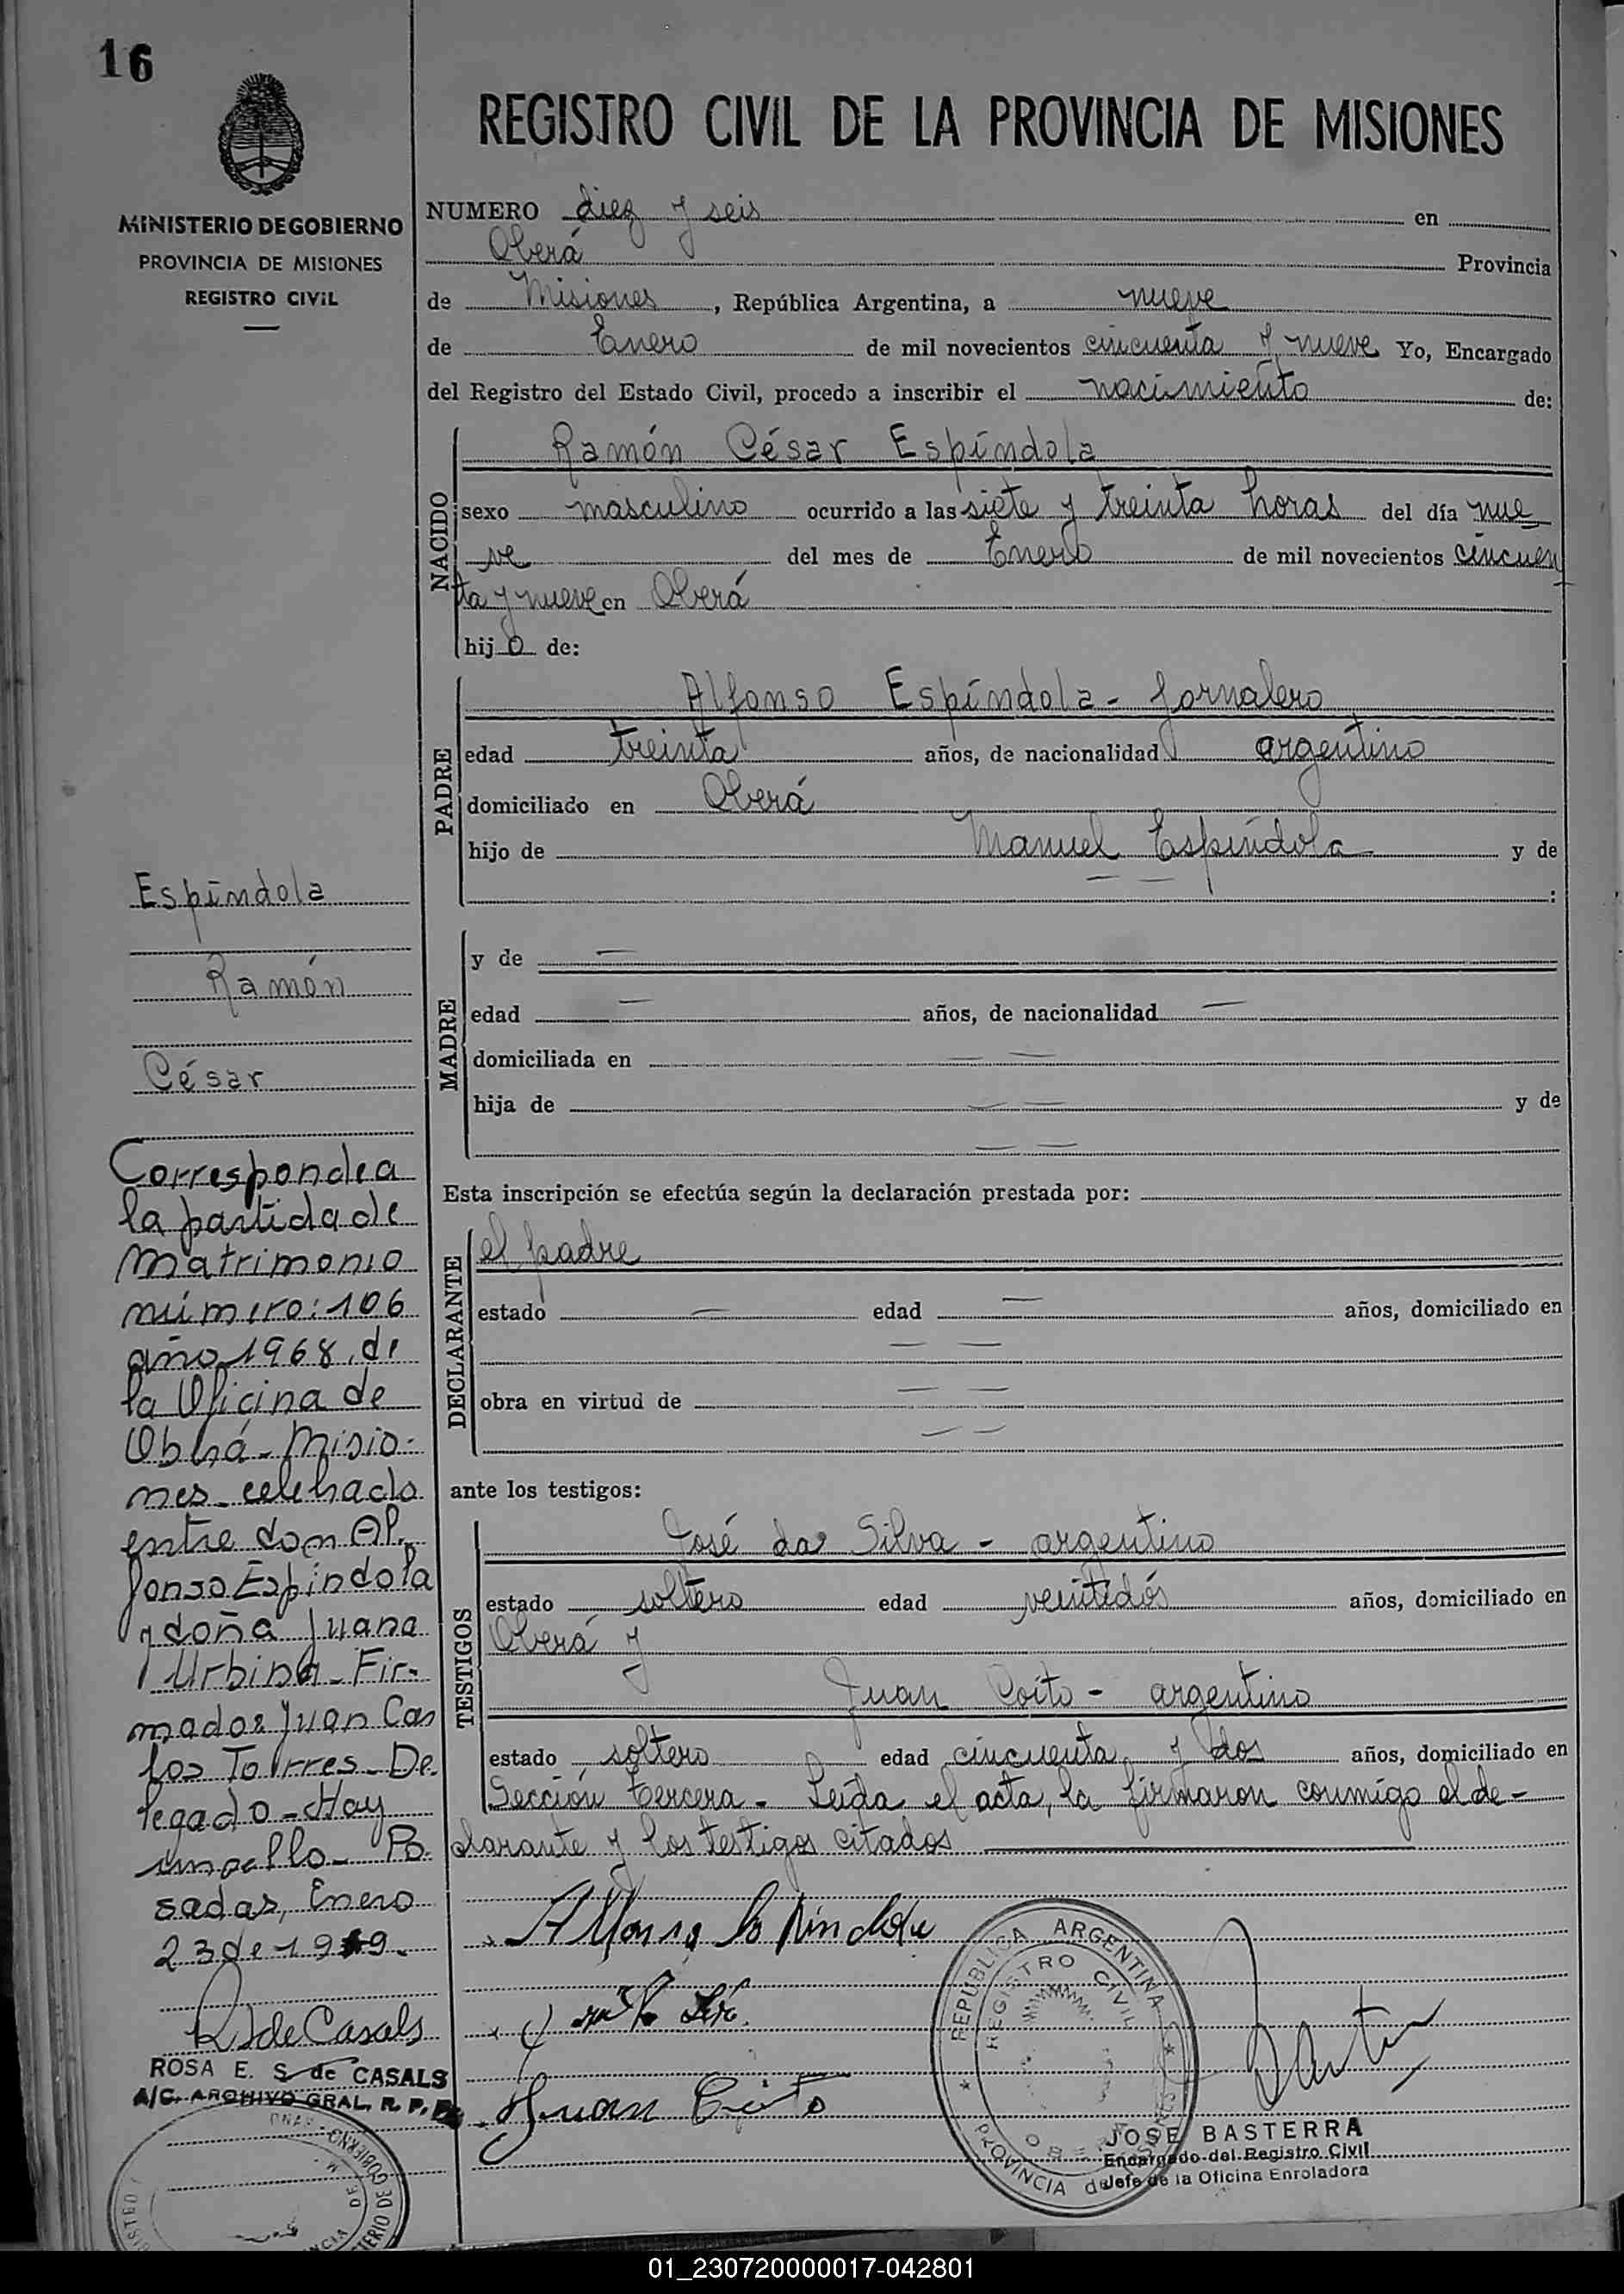 16
MINISTERIO DE GOBIERNO
PROVINCIA DE MISIONES
REGISTRO CIVIL
REGISTRO CIVIL DE LA PROVINCIA DE MISIONES
NUMERO diez y seis en
Oberá Provincia
de Misiones, República Argentina, a nueve
de Enero de mil novecientos cincuenta y nueve Yo, Encargado
del Registro del Estado Civil, procedo a inscribir el nacimiento de:
NACIDO
Ramón César Espíndola
sexo masculino ocurrido a las siete y treinta horas del día nue
ve del mes de Enero de mil novecientos cincuen
ta y nueve en Oberá
hijo de:
PADRE
Alfonso Espíndola - Jornalero
edad treinta años, de nacionalidad argentino
domiciliado en Oberá
hijo de Manuel Espíndola y de
:
MADRE
y de —
edad — años, de nacionalidad —
domiciliada en — —
hija de — — y de
— —
Esta inscripción se efectúa según la declaración prestada por:
DECLARANTE
el padre
estado — edad — años, domiciliado en
— —
obra en virtud de — —
— —
ante los testigos:
TESTIGOS
José da Silva - argentino
estado soltero edad veintidós años, domiciliado en
Oberá y
Juan Coito - argentino
estado soltero edad cincuenta y dos años, domiciliado en
Sección tercera - Leída el acta, la firmaron conmigo el de-
clarante y los testigos citados
Espíndola
Ramón
César
Corresponde a
la partida de
matrimonio
número: 106
año 1968, de
la Oficina de
Oberá - Misio-
nes - celebrado
entre don Al-
fonso Espíndola
y doña Juana
Urbina - Fir-
mados Juan Car
los Torres - De
legado - Hay
un sello - Po
sadas, Enero
23 de 19 9.
R S de Casals
ROSA E. S. de CASALS
A/C. ARCHIVO GRAL. R. P.
Alfonso Espindola
Juan Coito
REPUBLICA ARGENTINA
REGISTRO CIVIL
PROVINCIA de
JOSE BASTERRA
Encargado del Registro Civil
Jefe de la Oficina Enroladora
01_230720000017-042801